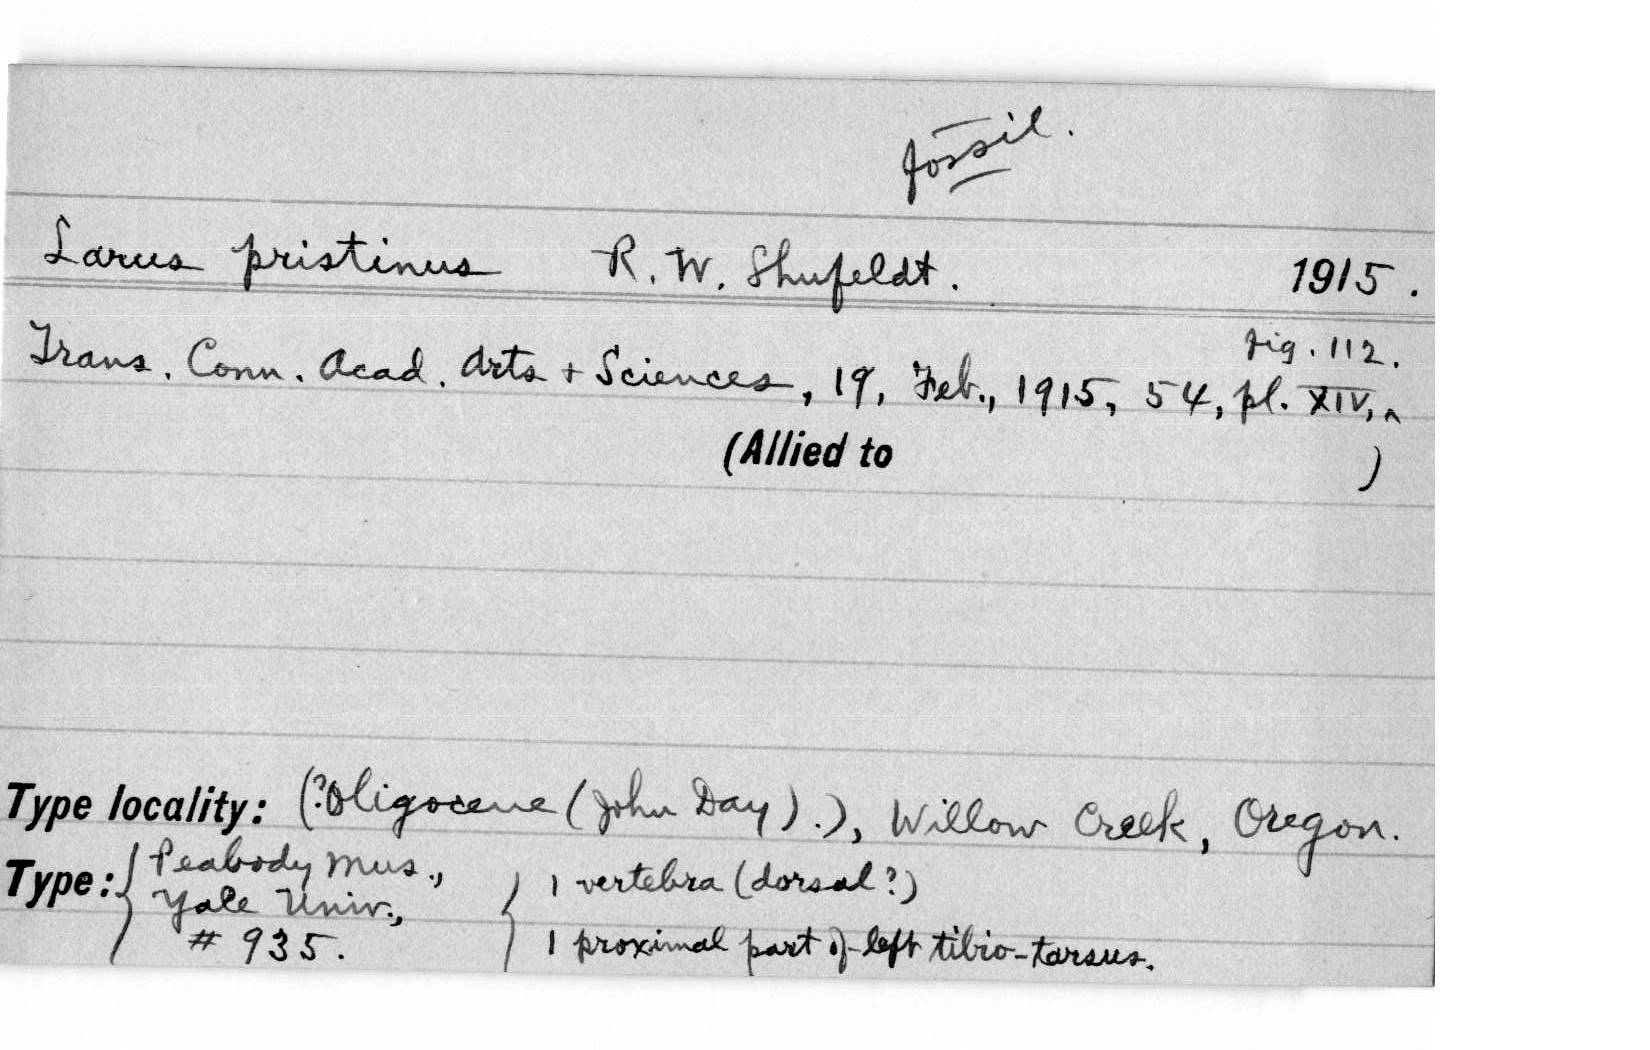 fossil.
Larus pristinus R. W. Shufeldt. 1915.
fig. 112.
Trans. Conn. Acad. Arts + Sciences, 19, Feb., 1915, 54, pl. XIV, ^
(Allied to )
Type locality: (?Oligocene (John Day).), Willow Creek, Oregon.
Type: { Peabody Mus., { 1 vertebra (dorsal?)
Yale Univ.,
# 935. 1 proximal part of left tibio-tarsus.